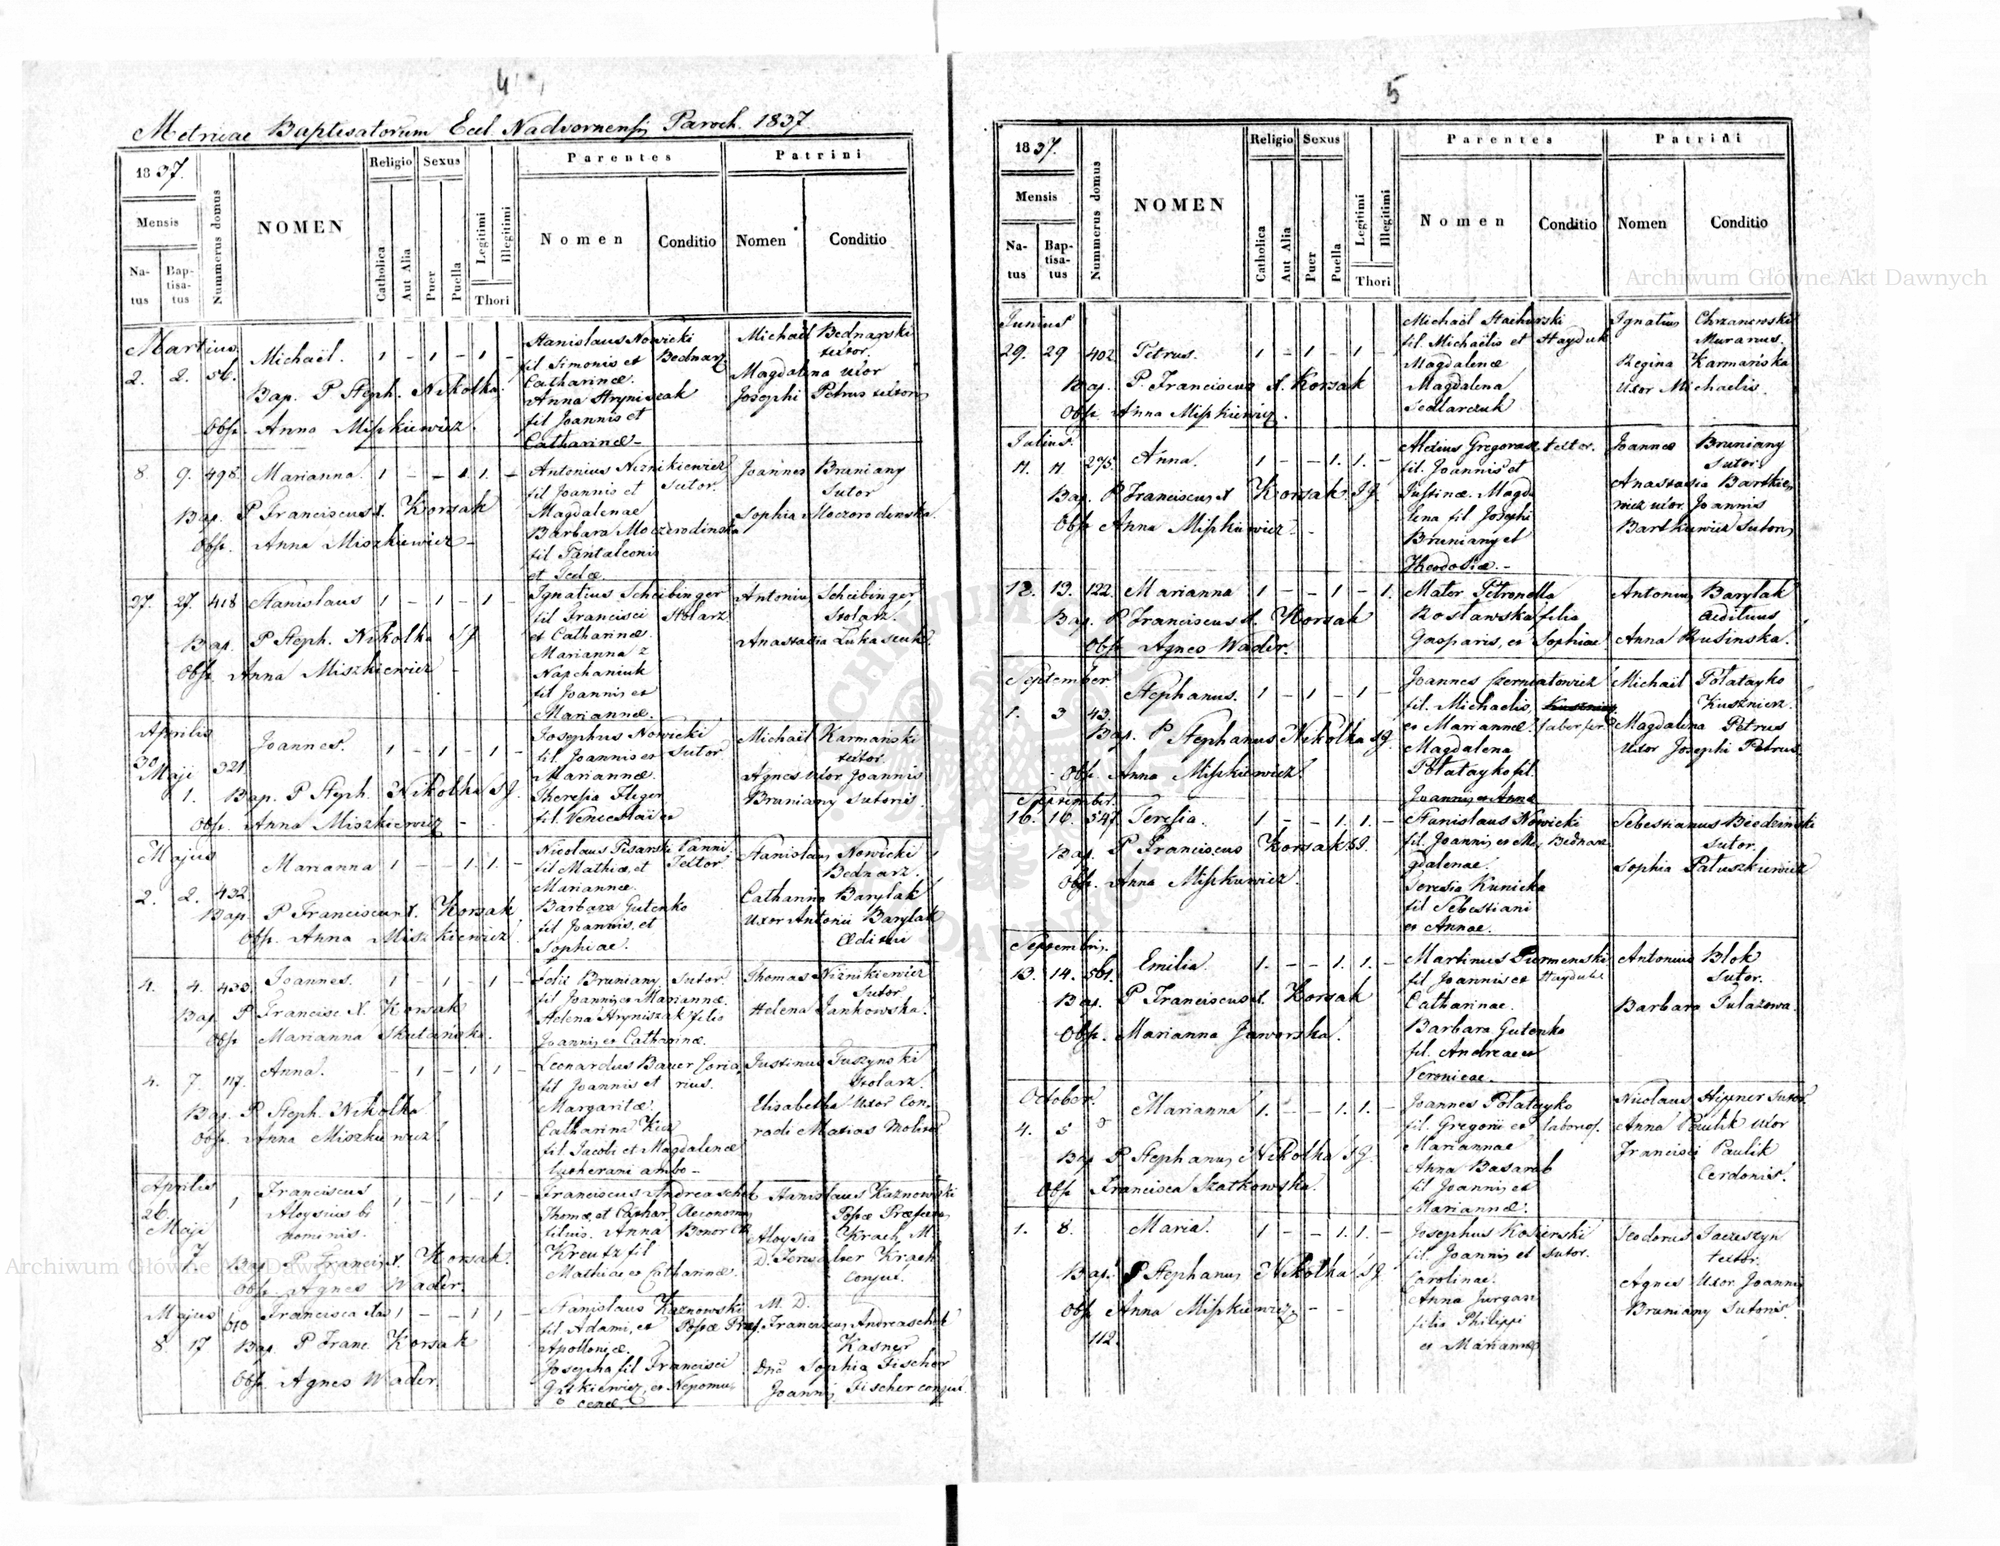 4
Metricae Baptisatorum Eccl. Nadvornensis Paroch. 1837.
1837.
Mensis
Natus
Baptisatus
Numerus domus
NOMEN
Religio
Catholica
Aut Alia
Sexus
Puer
Puella
Legitimi
Illegitimi
Thori
Parentes
Nomen
Conditio
Patrini
Nomen
Conditio
Martius
2. 2. 56. Michaël. 1 - 1 - 1 -
Stanislaus Nowicki
fil Simonis et Bednarz
Catharinæ.
Anna Hryniszak
fil Joannis et
Catharinæ -
Michaël Bednarski
textor.
Magdalena uxor
Josephi Petrus textoris
Bap. P Steph. Nikolka.
Obst. Anna Miszkiewicz.
8. 9. 498. Marianna. 1 - - 1 1. -
Antonius Niznikiewicz
fil Joannis et Sutor.
Magdalenae
Barbara Moczerodinska
fil Pantaleonis
et Teclæ.
Joannes Bruniany
Sutor
Sophia Moczorodenska.
Bap. P Franciscus X. Korsak
Obst. Anna Miszkiewicz -
27. 27. 418 Stanislaus 1 - 1 - 1 -
Ignatius Scheibinger
fil Francisci Stolarz
et Catharinæ.
Marianna z
Napchaniuk
fil Joannis et
Mariannæ.
Antonius Scheibinger
Stolarz.
Anastasia Lukasiuk.
Bap. P Steph. Nikolka Sg
Obst. Anna Miszkiewicz -
Aprilis
30 321 Joannes. 1 - 1 - 1 -
Maji
1.
Josephus Nowicki
fil. Joannis et Sutor
Mariannæ.
Theresia Fliger
fil. Venceslai et
Michaël Karmański
textor.
Agnes uxor Joannis
Bruniany Sutoris.
Bap. P Steph. Nikolka Sg.
Obst. Anna Miszkiewicz -
Majus
2. 2. 432. Marianna 1 - - 1 1. -
Nicolaus Pisarski Panni
fil Mathiæ, et Textor
Mariannæ.
Barbara Gutenko
fil Joannis, et
Sophiae.
Stanislaus Nowicki
Bednarz.
Catharina Barylak
Uxor Antonii Barylak
Æditui
Bap. P Franciscus X. Korsak
Obst. Anna Miszkiewicz.
4. 4. 433. Joannes. 1 - 1 - 1 -
Bruniany Sutor.
fil Joannis et Mariannæ.
Helena Hryniszak filia
Joannis et Catharinæ.
Thomas Niznikiewicz
Sutor
Helena Jankowska.
Bap P Francisc X. Korsak
Obst Marianna
4. 7. 117. Anna. - 1 - 1 1 -
Leonardus Bauer Coria
fil Joannis et rius.
Margaritæ.
Catharina
fil Jacobi et Magdalenæ
Lutherani ambo -
Justinus Tuszynski
Stolarz.
Elisabetha Uxor Con
radi Matias
Bap. P Steph. Nikolka
Obst. Anna Miszkiewicz.
Aprilis
26 1 Franciscus 1 - 1 - 1 -
Maji Aloysius bi
7 nominis.
Franciscus Andreaschek
Thomæ, et Cathar Oeconomus
filius. Anna
Kreutz fil
Mathiæ et Catharinæ.
Stanislaus Kaznowski
Præfectus
Aloysia Krach M.
D. Krach
conjux.
Bap. P Francis X. Korsak.
Obst. Agnes Wader.
Majus
8. 17 610 Francisca 1 - - 1 1 -
Stanislaus Kaznowski
fil Adami, et
Apolloniæ.
Josepha fil Francisci
et Nepomu
cenæ.
M. D.
Franciscus Andreaschek
Kasner
Dnæ Sophia Fischer
Joannis Fischer conjux.
Bap. P Franc. Korsak
Obst Agnes Wader.
5
1837.
Mensis
Natus
Baptisatus
Numerus domus
NOMEN
Religio
Catholica
Aut Alia
Sexus
Puer
Puella
Legitimi
Illegitimi
Thori
Parentes
Nomen
Conditio
Patrini
Nomen
Conditio
Junius
29. 29 402 Petrus. 1 - 1 - 1 -
Michaël Stachurski
fil. Michaëlis et Hayduk
Magdalenæ
Magdalena
Sedlarczuk
Ignatius Chrzanowski
Muranus.
Regina Karmańska
uxor Michaelis.
Bap. P. Franciscus X. Korsak
Obst Anna Miszkiewicz.
Julius.
11. 11 275. Anna. 1 - - 1. 1. -
Alexius Gregorasz textor.
fil. Joannis et
Justinæ. Magda
lena fil Josephi
Bruniany et
Theodosiæ. -
Joannes Bruniany
Sutor.
Anastasia Bartkie
wicz uxor Joannis
Bartkiewicz Sutoris
Bap. P Franciscus X Korsak Sg.
Obst Anna Miszkiewicz. -
13. 13. 122. Marianna 1 - - 1 - 1.
Mater Petronella
Rosławska filia
Gasparis, et Sophiae
Antonius Barylak
ædituus
Anna Rusinska.
Bap. P Franciscus X. Korsak
Obst Agnes Wader.
September
1. 3 43. Stephanus. 1 - 1 - 1 -
Joannes Czerniatowicz
fil. Michaelis,
et Mariannæ. faber fer
Magdalena
Połatayko fil.
Joannis et Anna
Michaël Połatayko
Kusznierz.
Magdalena Petrus
Uxor Josephi Petrus
Bap. P Stephanus Nikolka Sg.
Obst. Anna Miszkiewicz.
September.
16. 16. 547 Teresia. 1 - - 1. 1. -
Stanislaus Nowicki
fil. Joannis et Ma Bednarz
gdalenae.
Teresia Kunicka
fil Sebestiani
et Annæ.
Sebestianus Biedzinski
Sutor.
Sophia Patuszkiewicz
Bap. P Franciscus Korsak Sg.
Obst. Anna Miszkiewicz.
Septembris.
13. 14. 561. Emilia. 1. - - 1. 1. -
Martinus
fil Joannis et Hayduk
Catharinae.
Barbara Gutenko
fil. Andreae et
Veronicae.
Antonius Blok
Sutor.
Barbara
Bap. P Franciscus X. Korsak
Obst. Marianna Jaworska.
October.
4. 5 Marianna 1. - - 1. 1. -
Joannes Połatayko
fil. Gregorii et laborios.
Mariannae
Anna Basarab
fil Joannis et
Mariannæ.
Nicolaus Hipner Sutor
Anna Paulik uxor
Francisci Paulik
Cerdonis.
Bap P Stephanus Nikolka Sg.
Obst Francisca Szatkowska.
1. 8. Maria. 1 - - 1. 1. -
Josephus Kozierski
fil. Joannis et Sutor.
Carolinae.
Anna Jurgan
filia Philippi
et Mariannæ
Teodorus
textor.
Agnes Uxor Joannis
Bruniany Sutoris.
Bap. P Stephanus Nikolka Sg
Obst Anna Miszkiewicz - -
112.
Archiwum Główne Akt Dawnych
Archiwum Główne Akt Dawnych